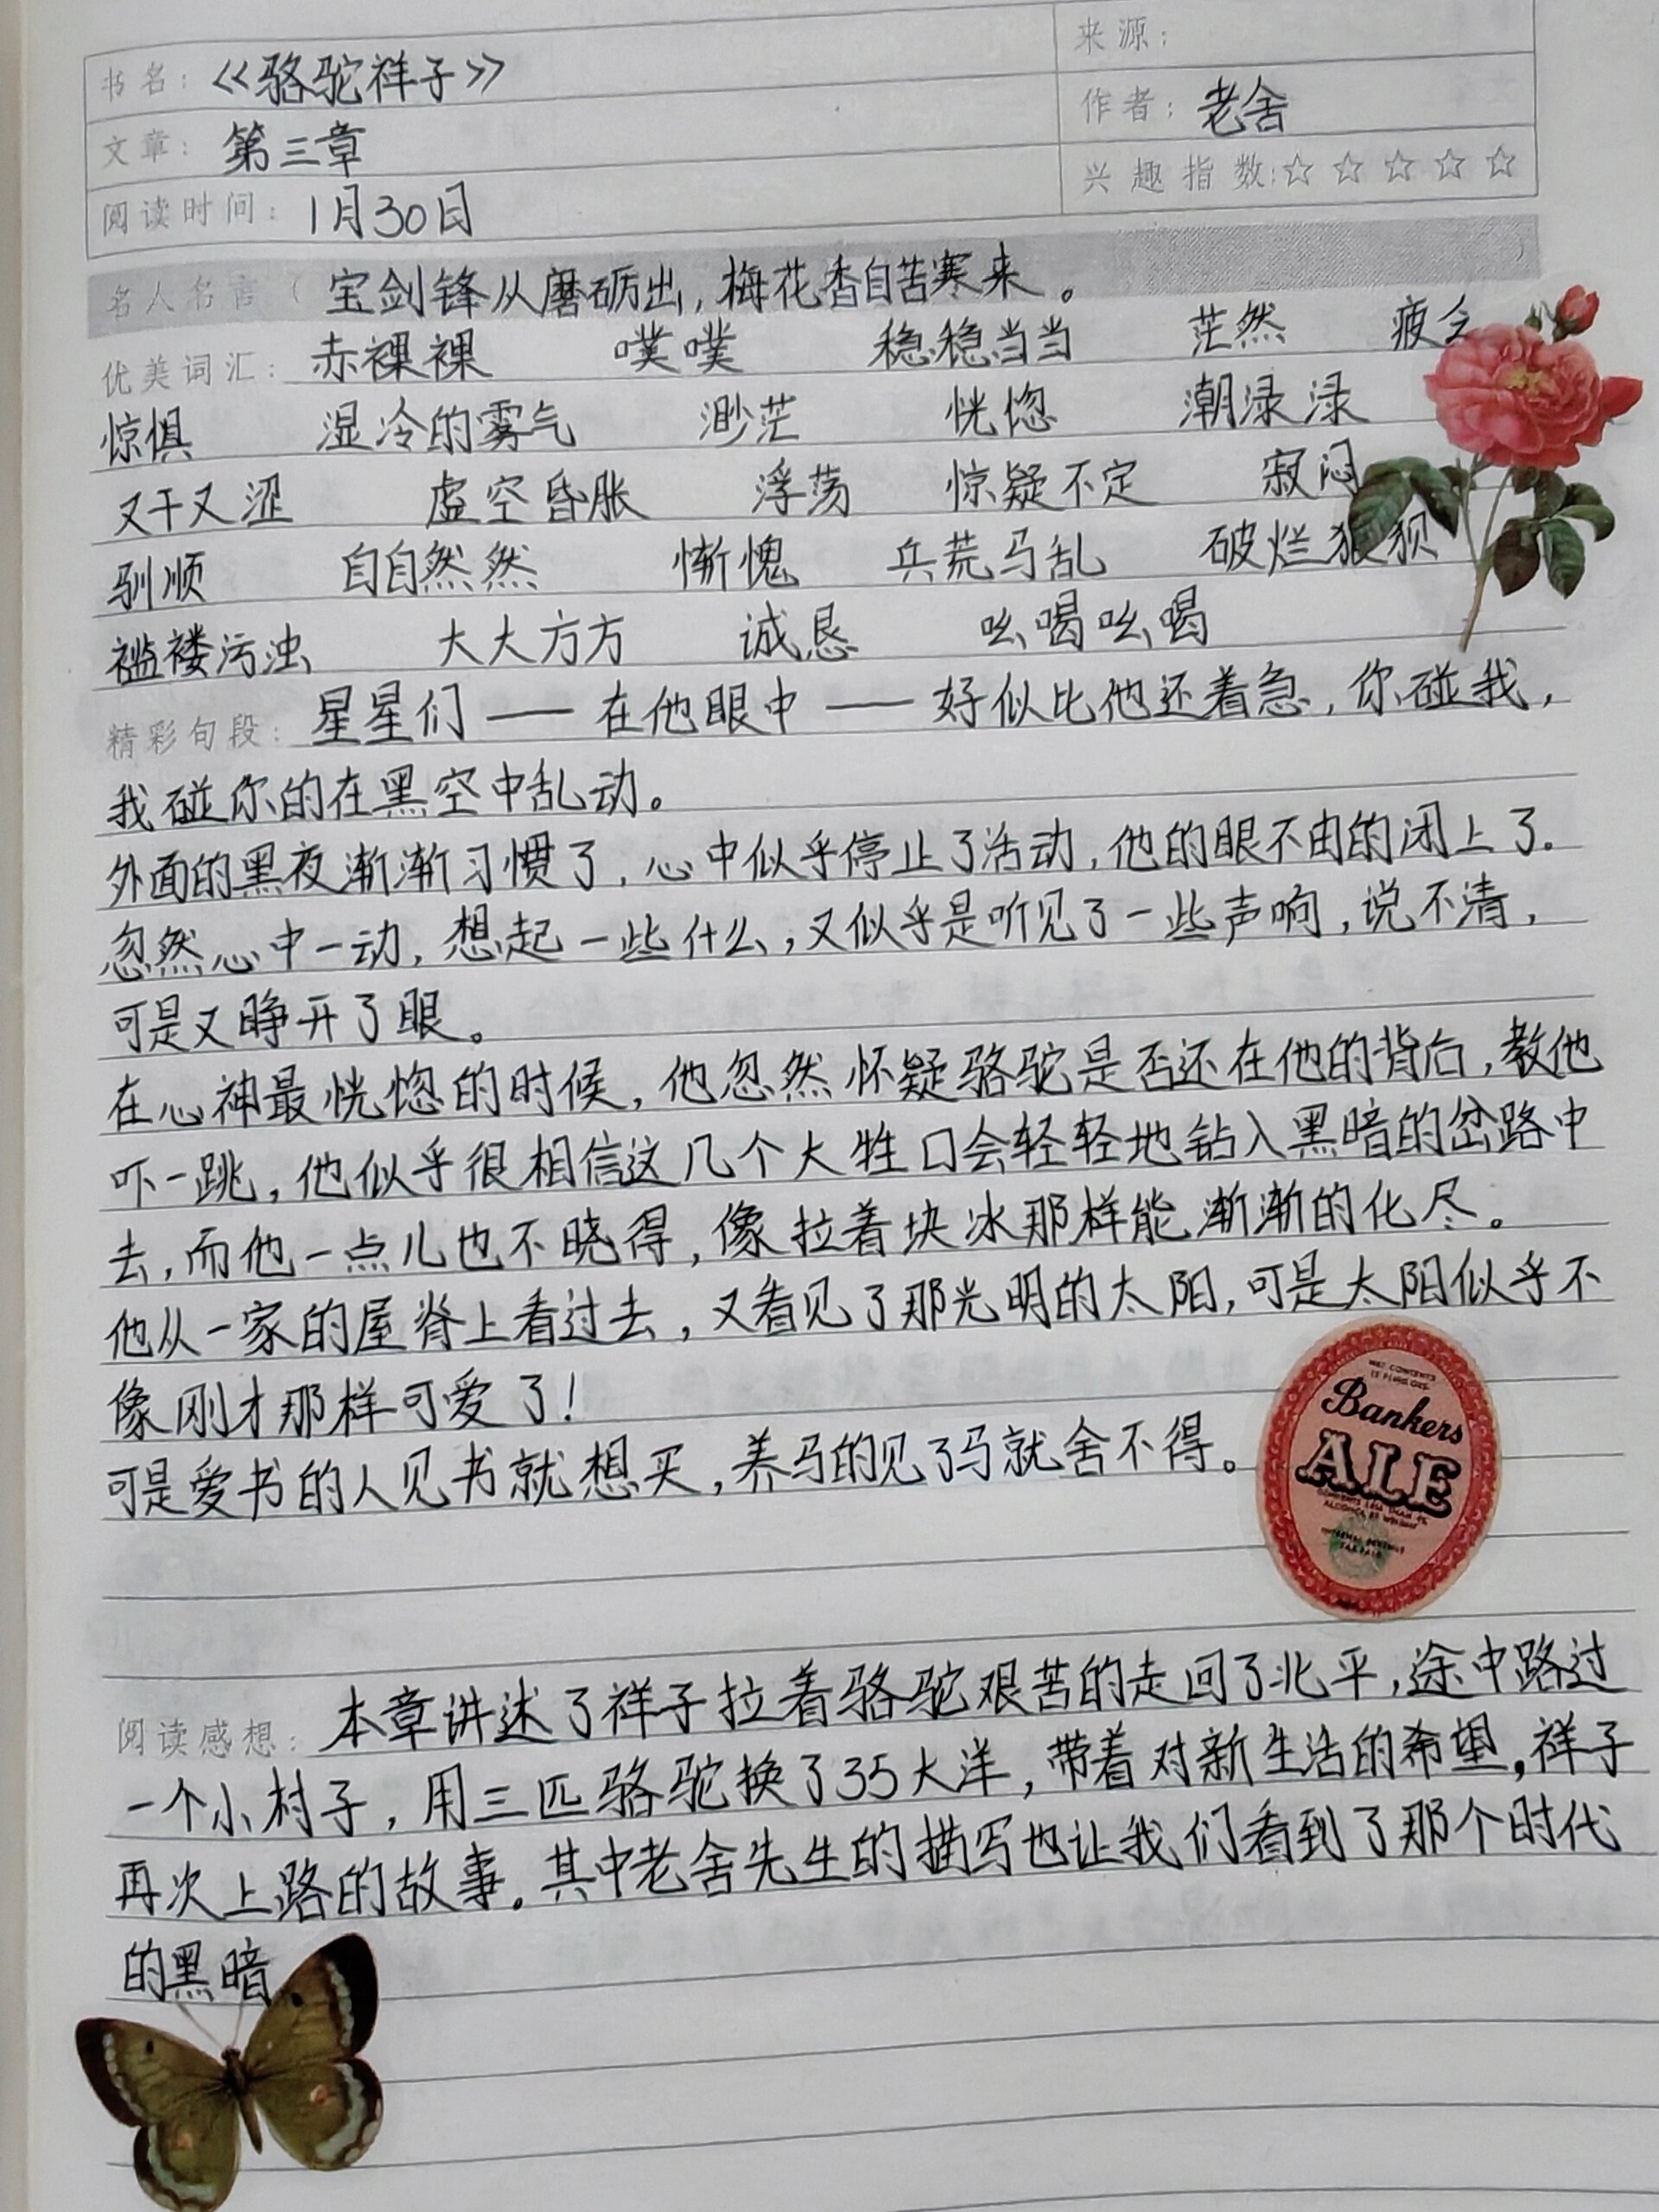 书名：《骆驼祥子》 来源：
文章：第三章 作者：老舍
阅读时间：1月30日 兴趣指数:☆ ☆ ☆ ☆ ☆
名人名言（ 宝剑锋从磨砺出，梅花香自苦寒来。 ）
优美词汇：赤裸裸 噗噗 稳稳当当 茫然 疲
惊惧 湿冷的雾气 渺茫 恍惚 潮渌渌
又干又涩 虚空昏胀 浮荡 惊疑不定 寂闷
驯顺 自自然然 惭愧 兵荒马乱 破烂狼狈
褴褛污浊 大大方方 诚恳 吆喝吆喝
精彩句段：星星们——在他眼中——好似比他还着急，你碰我，
我碰你的在黑空中乱动。
外面的黑夜渐渐习惯了，心中似乎停止了活动，他的眼不由的闭上了.
忽然心中一动，想起一些什么，又似乎是听见了一些声响，说不清，
可是又睁开了眼。
在心神最恍惚的时候，他忽然怀疑骆驼是否还在他的背后，教他
吓一跳，他似乎很相信这几个大牲口会轻轻地钻入黑暗的岔路中
去，而他一点儿也不晓得，像拉着块冰那样能渐渐的化尽。
他从一家的屋脊上看过去，又看见了那光明的太阳，可是太阳似乎不
像刚才那样可爱了！
可是爱书的人见书就想买，养马的见了马就舍不得。
Bankers
ALE
阅读感想：本章讲述了祥子拉着骆驼艰苦的走回了北平，途中路过
一个小村子，用三匹骆驼换了35大洋，带着对新生活的希望，祥子
再次上路的故事。其中老舍先生的描写也让我们看到了那个时代
的黑暗